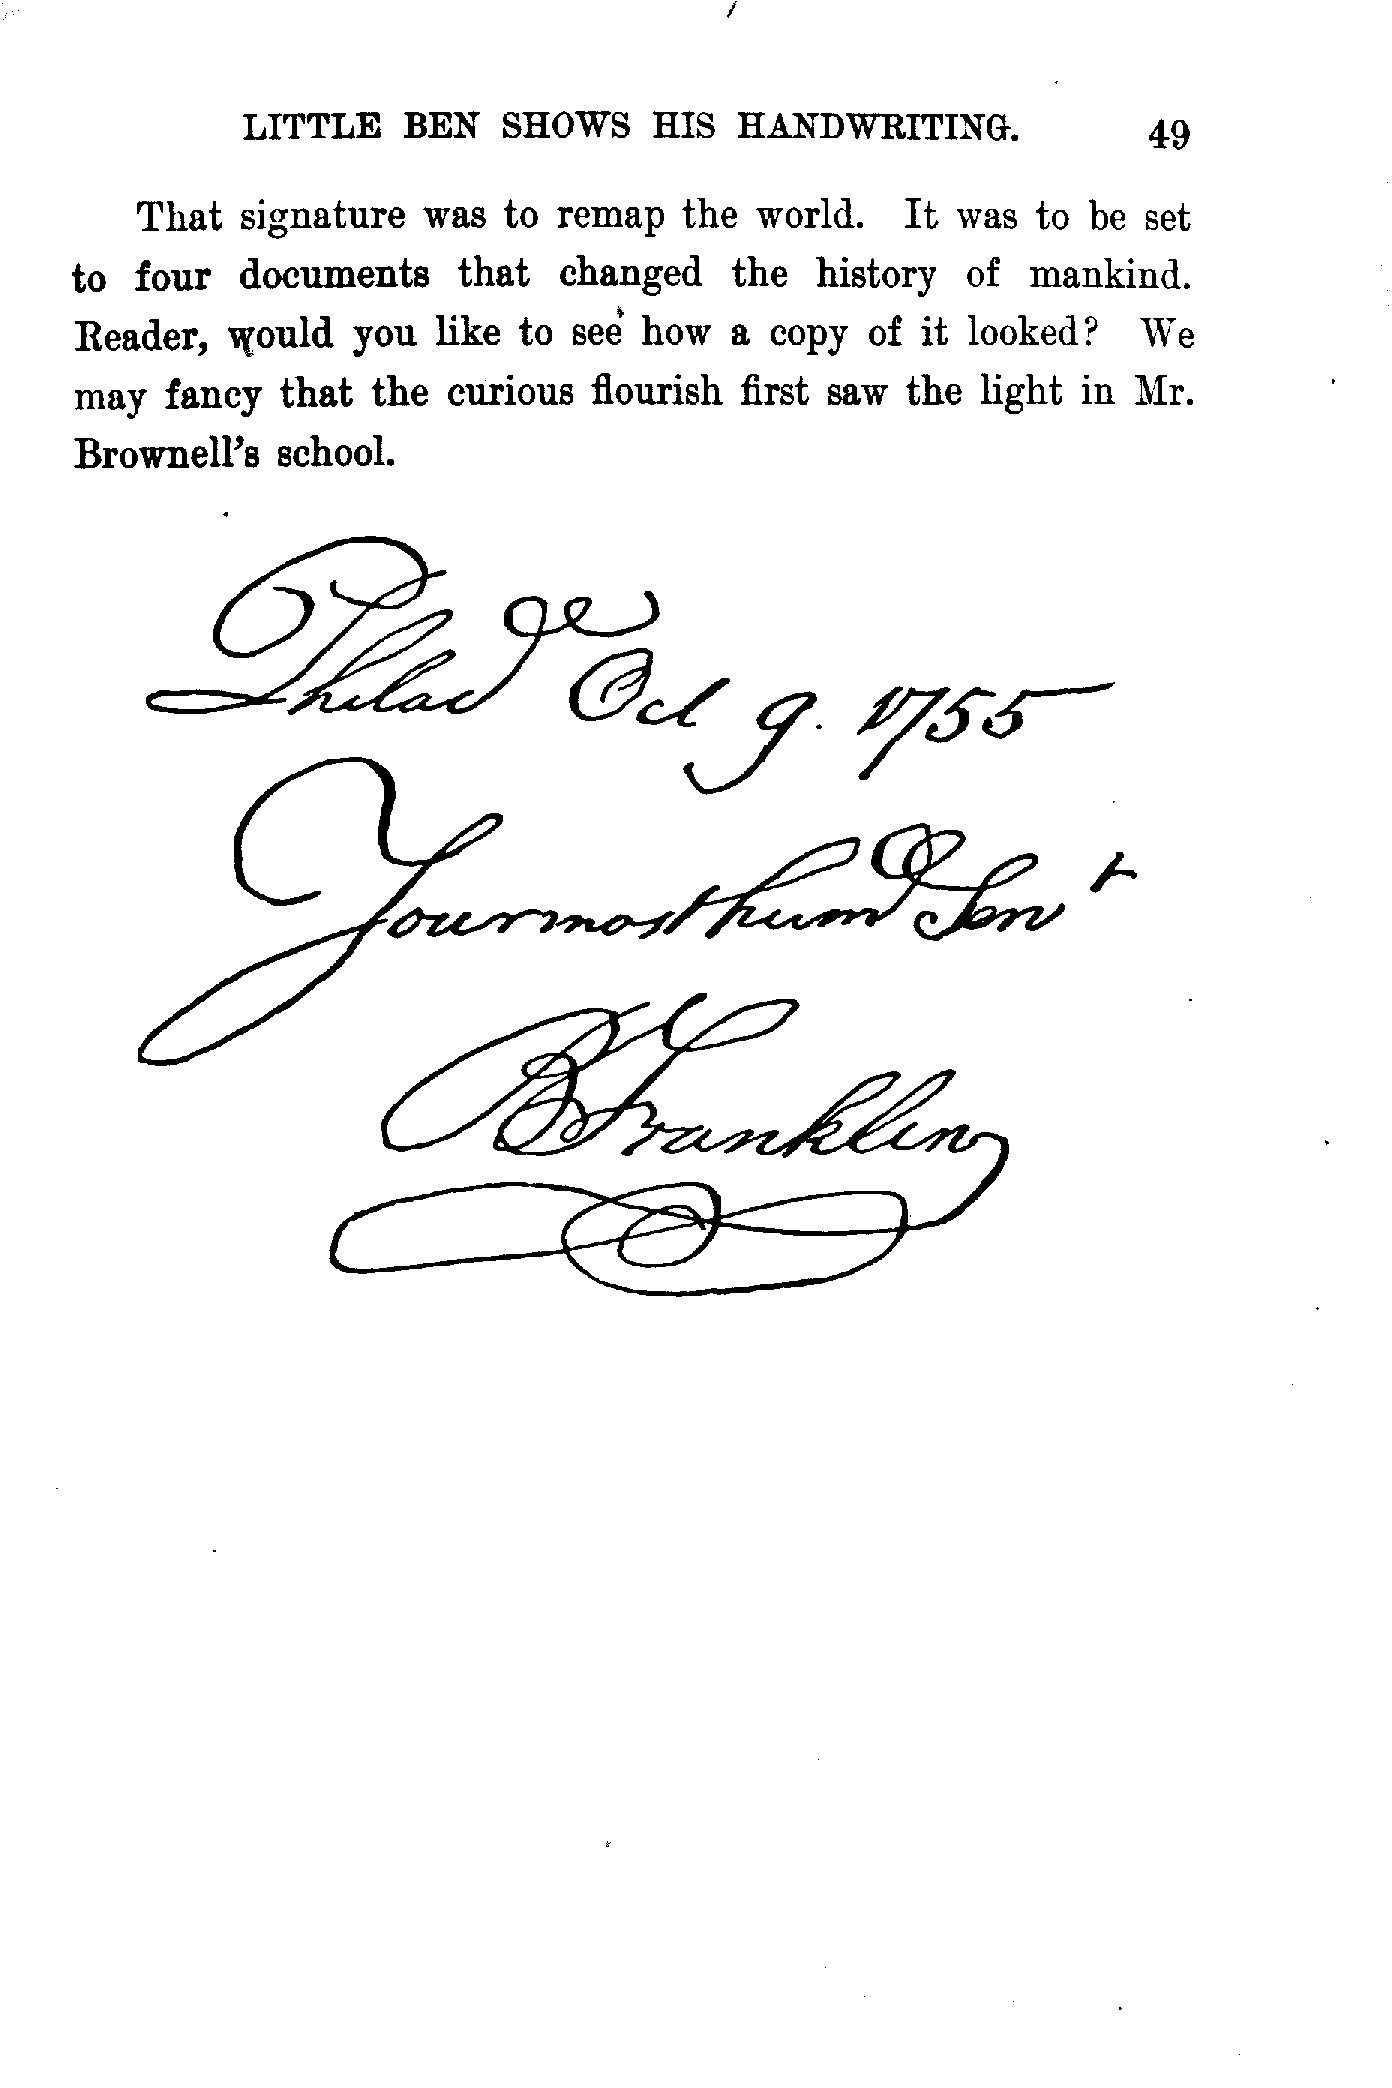 LITTLE BEN SHOWS HIS HANDWRITING. 49
That signature was to remap the world. It was to be set
to four documents that changed the history of mankind.
Reader, would you like to see how a copy of it looked? We
may fancy that the curious flourish first saw the light in Mr.
Brownell's school.
Philade Oct 9. 1755
Your most hum Serv t
B Franklin